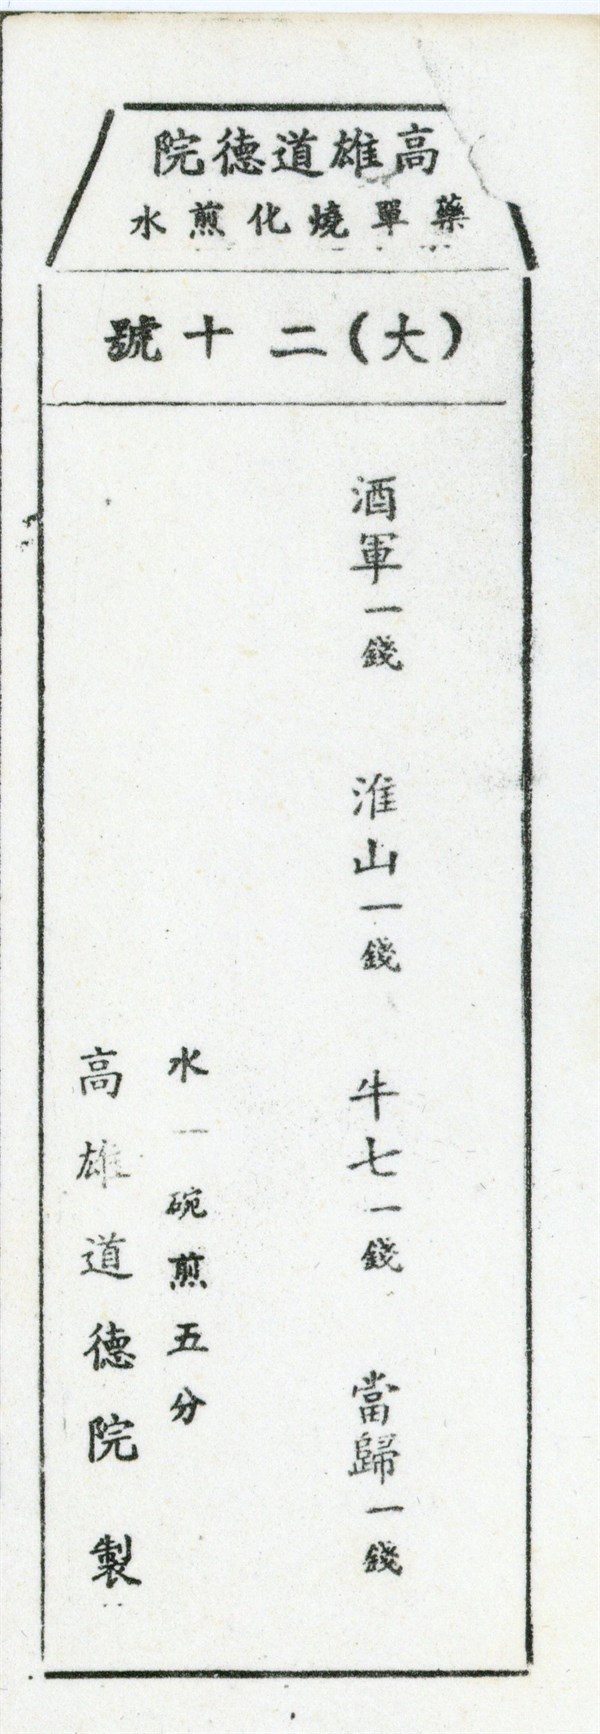 高雄道德院
藥單燒化煎水
(大)二十號
酒軍一錢　淮山一錢　牛七一錢　當歸一錢
水一碗煎五分
高雄道德院製